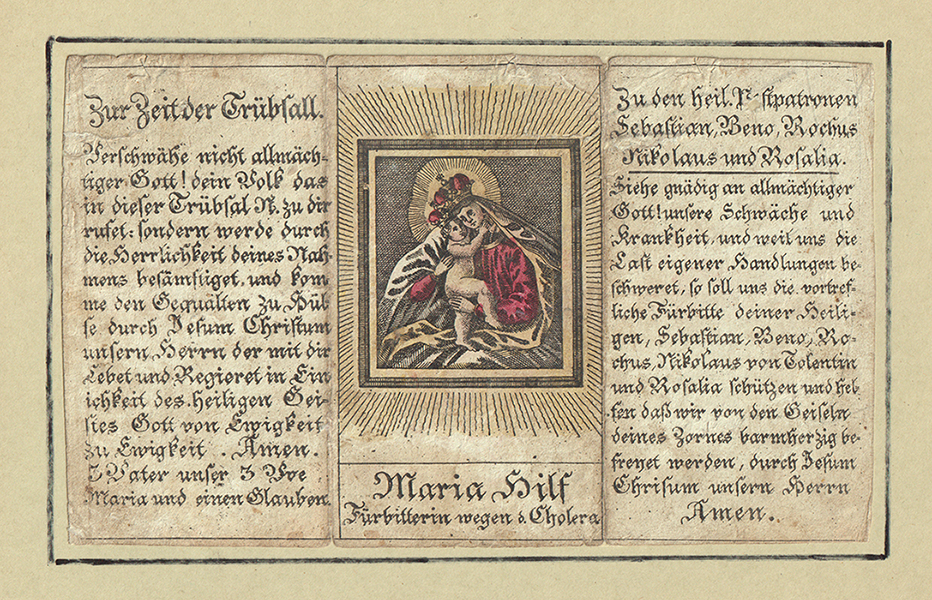 Zur Zeit der Trübsall.
Verschwähe nicht allmäch-
tiger Gott! dein Volk das
in dieser Trübsal N. zu dir
rufet: sondern werde durch
die Herrlichkeit deines Nah-
mens besämftiget, und kom
me den Gequälten zu Hül
fe durch Jesum Christum
unsern Herrn der mit dir
Lebet und Regieret in Ein
ichkeit des heiligen Gei-
stes Gott von Ewigkeit
zu Ewigkeit . Amen.
3 Vater unser 3 Ave
Maria und einen Glauben.
Maria Hilf
Fürbitterin wegen d. Cholera
Zu den heil. Pestpatronen
Sebastian, Beno, Rochus
Nikolaus und Rosalia.
Siehe gnädig an allmächtiger
Gott! unsere Schwäche und
Krankheit, und weil uns die
Last eigener Handlungen be-
schweret, so soll uns die vortref-
liche Fürbitte deiner Heili-
gen, Sebastian, Beno, Ro-
chus, Nikolaus von Tolentin
und Rosalia schützen und hel-
fen daß wir von den Geiseln
deines Zornes barmherzig be-
freyet werden, durch Jesum
Chrisum unsern Herrn
Amen.